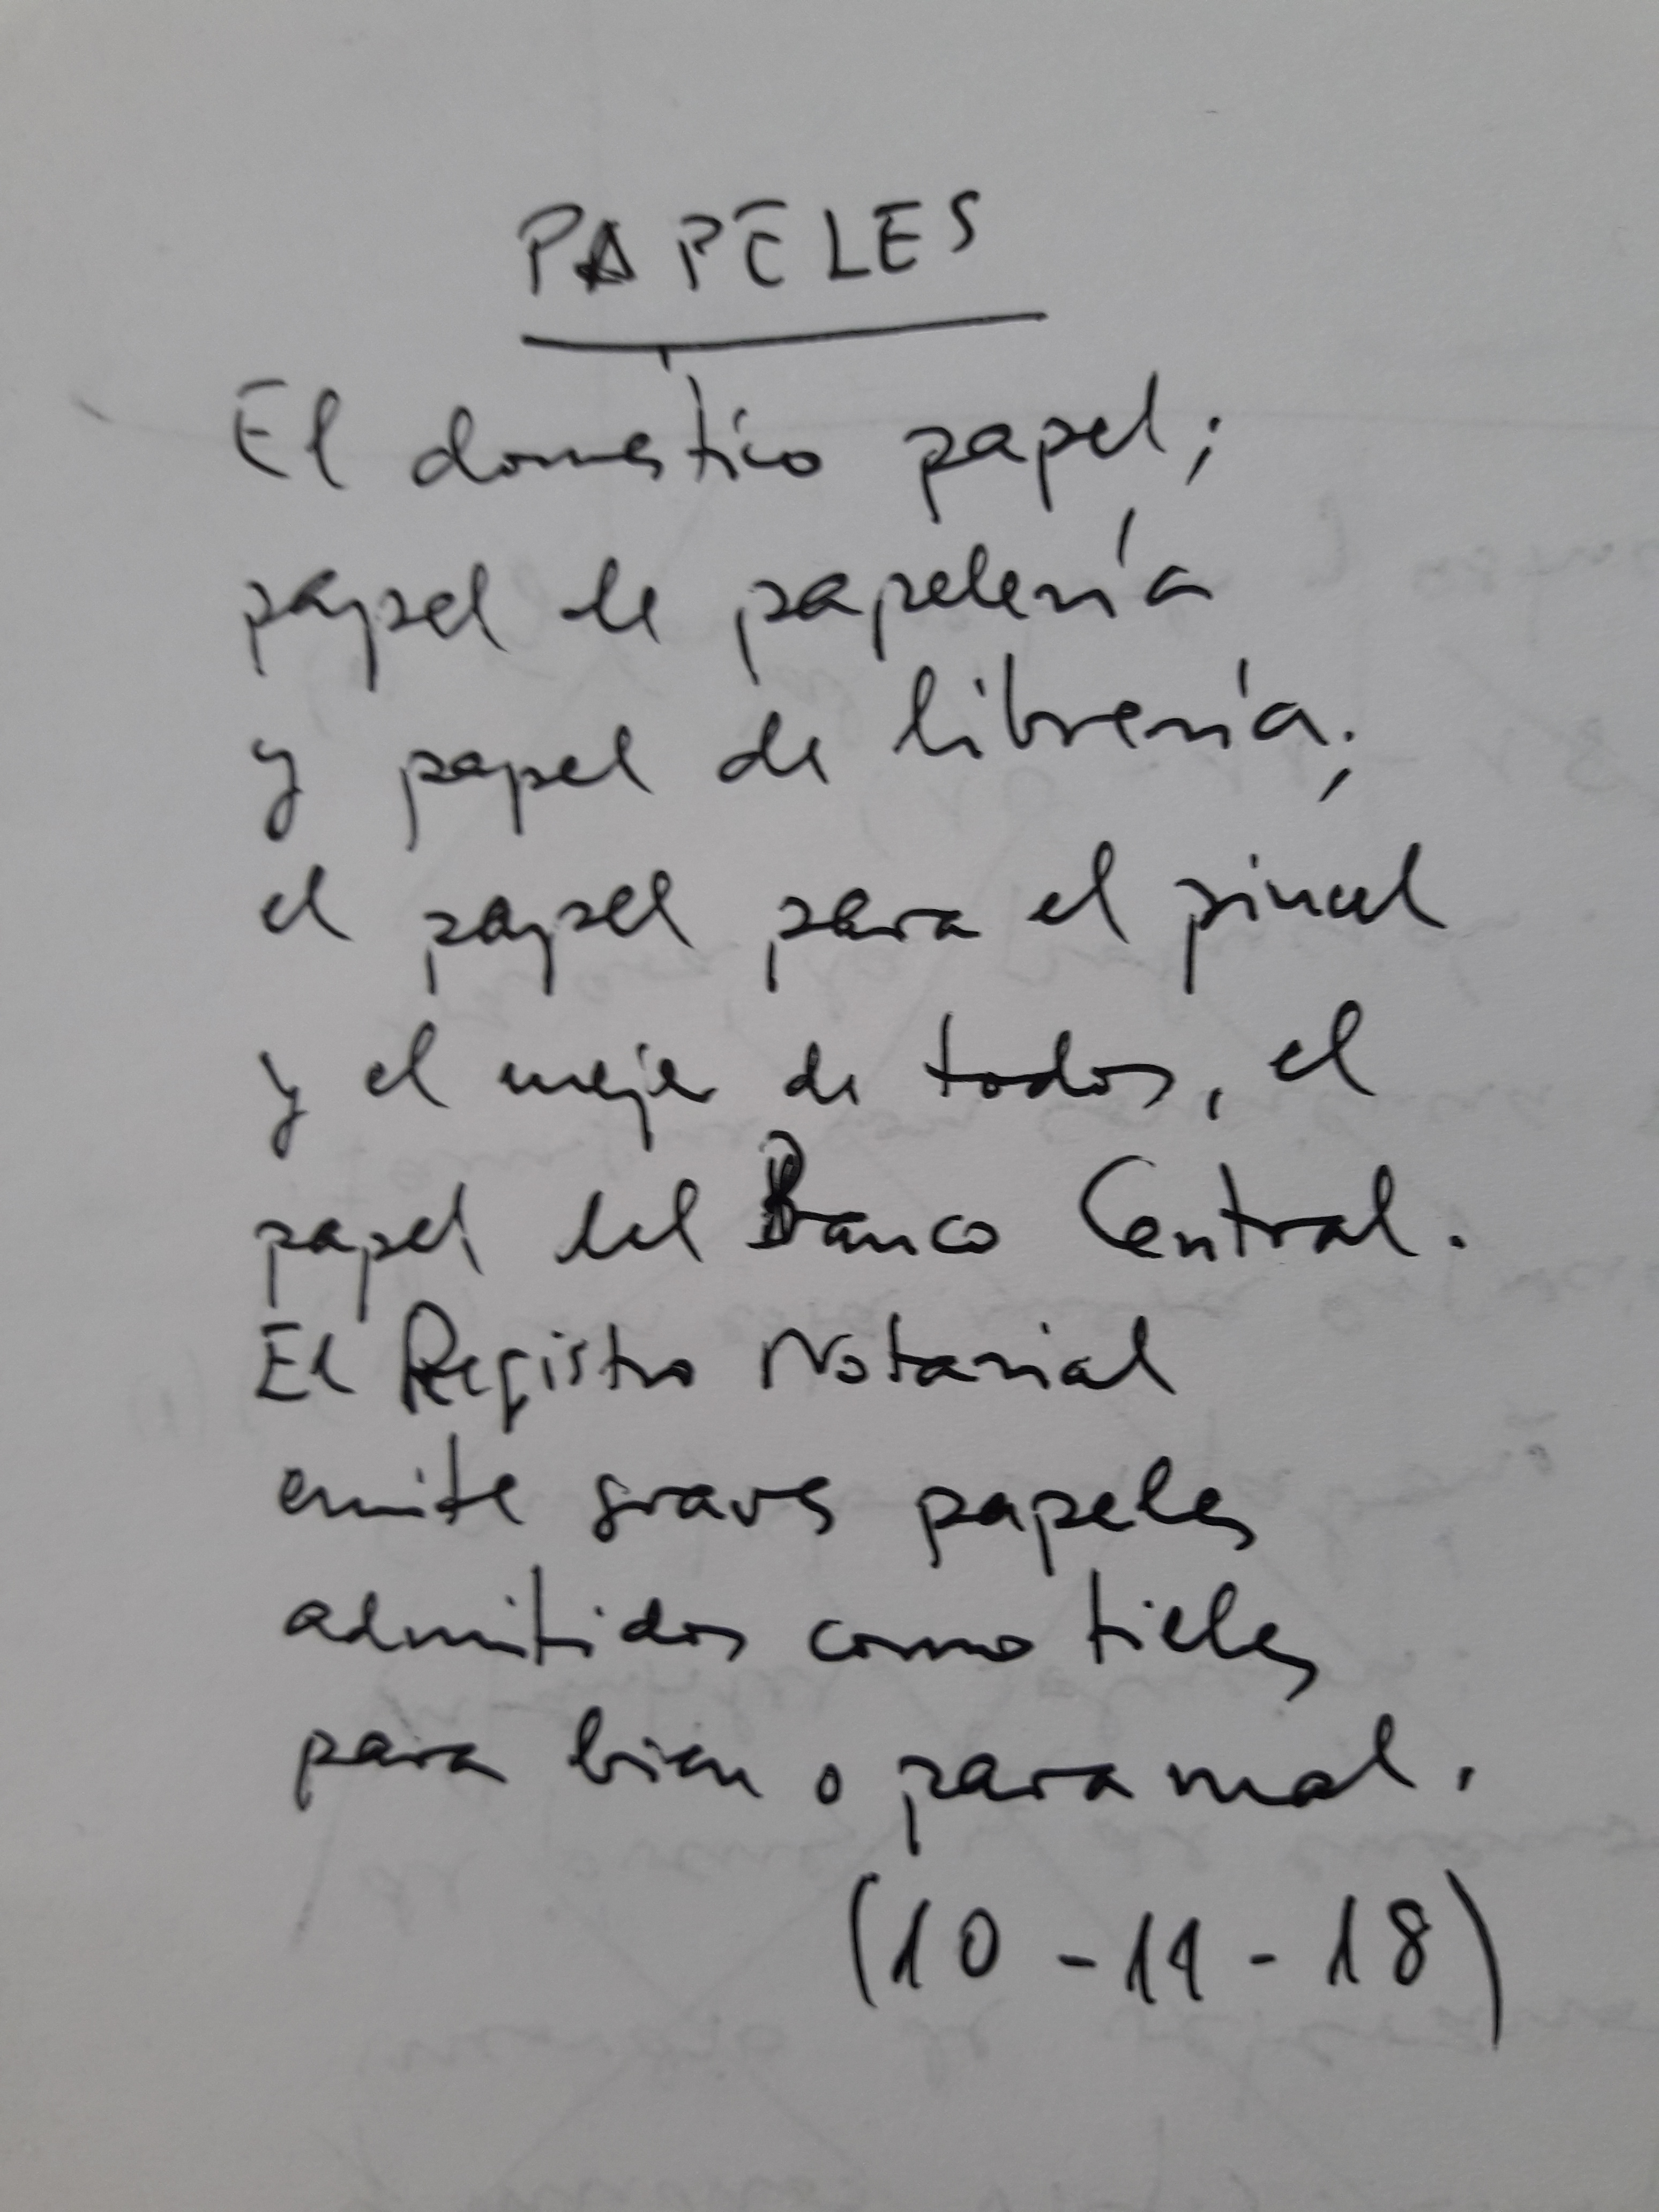 PAPELES
El doméstico papel;
papel de papelería
y papel de librería;
el papel para el pincel
y el mejor de todos, el
papel del Banco Central.
El Registro Notarial
emite graves papeles
admitidos como tieles
para bien o para mal.
(10-11-18)